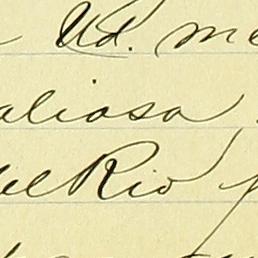 Ud. me
aliosa
del Rio